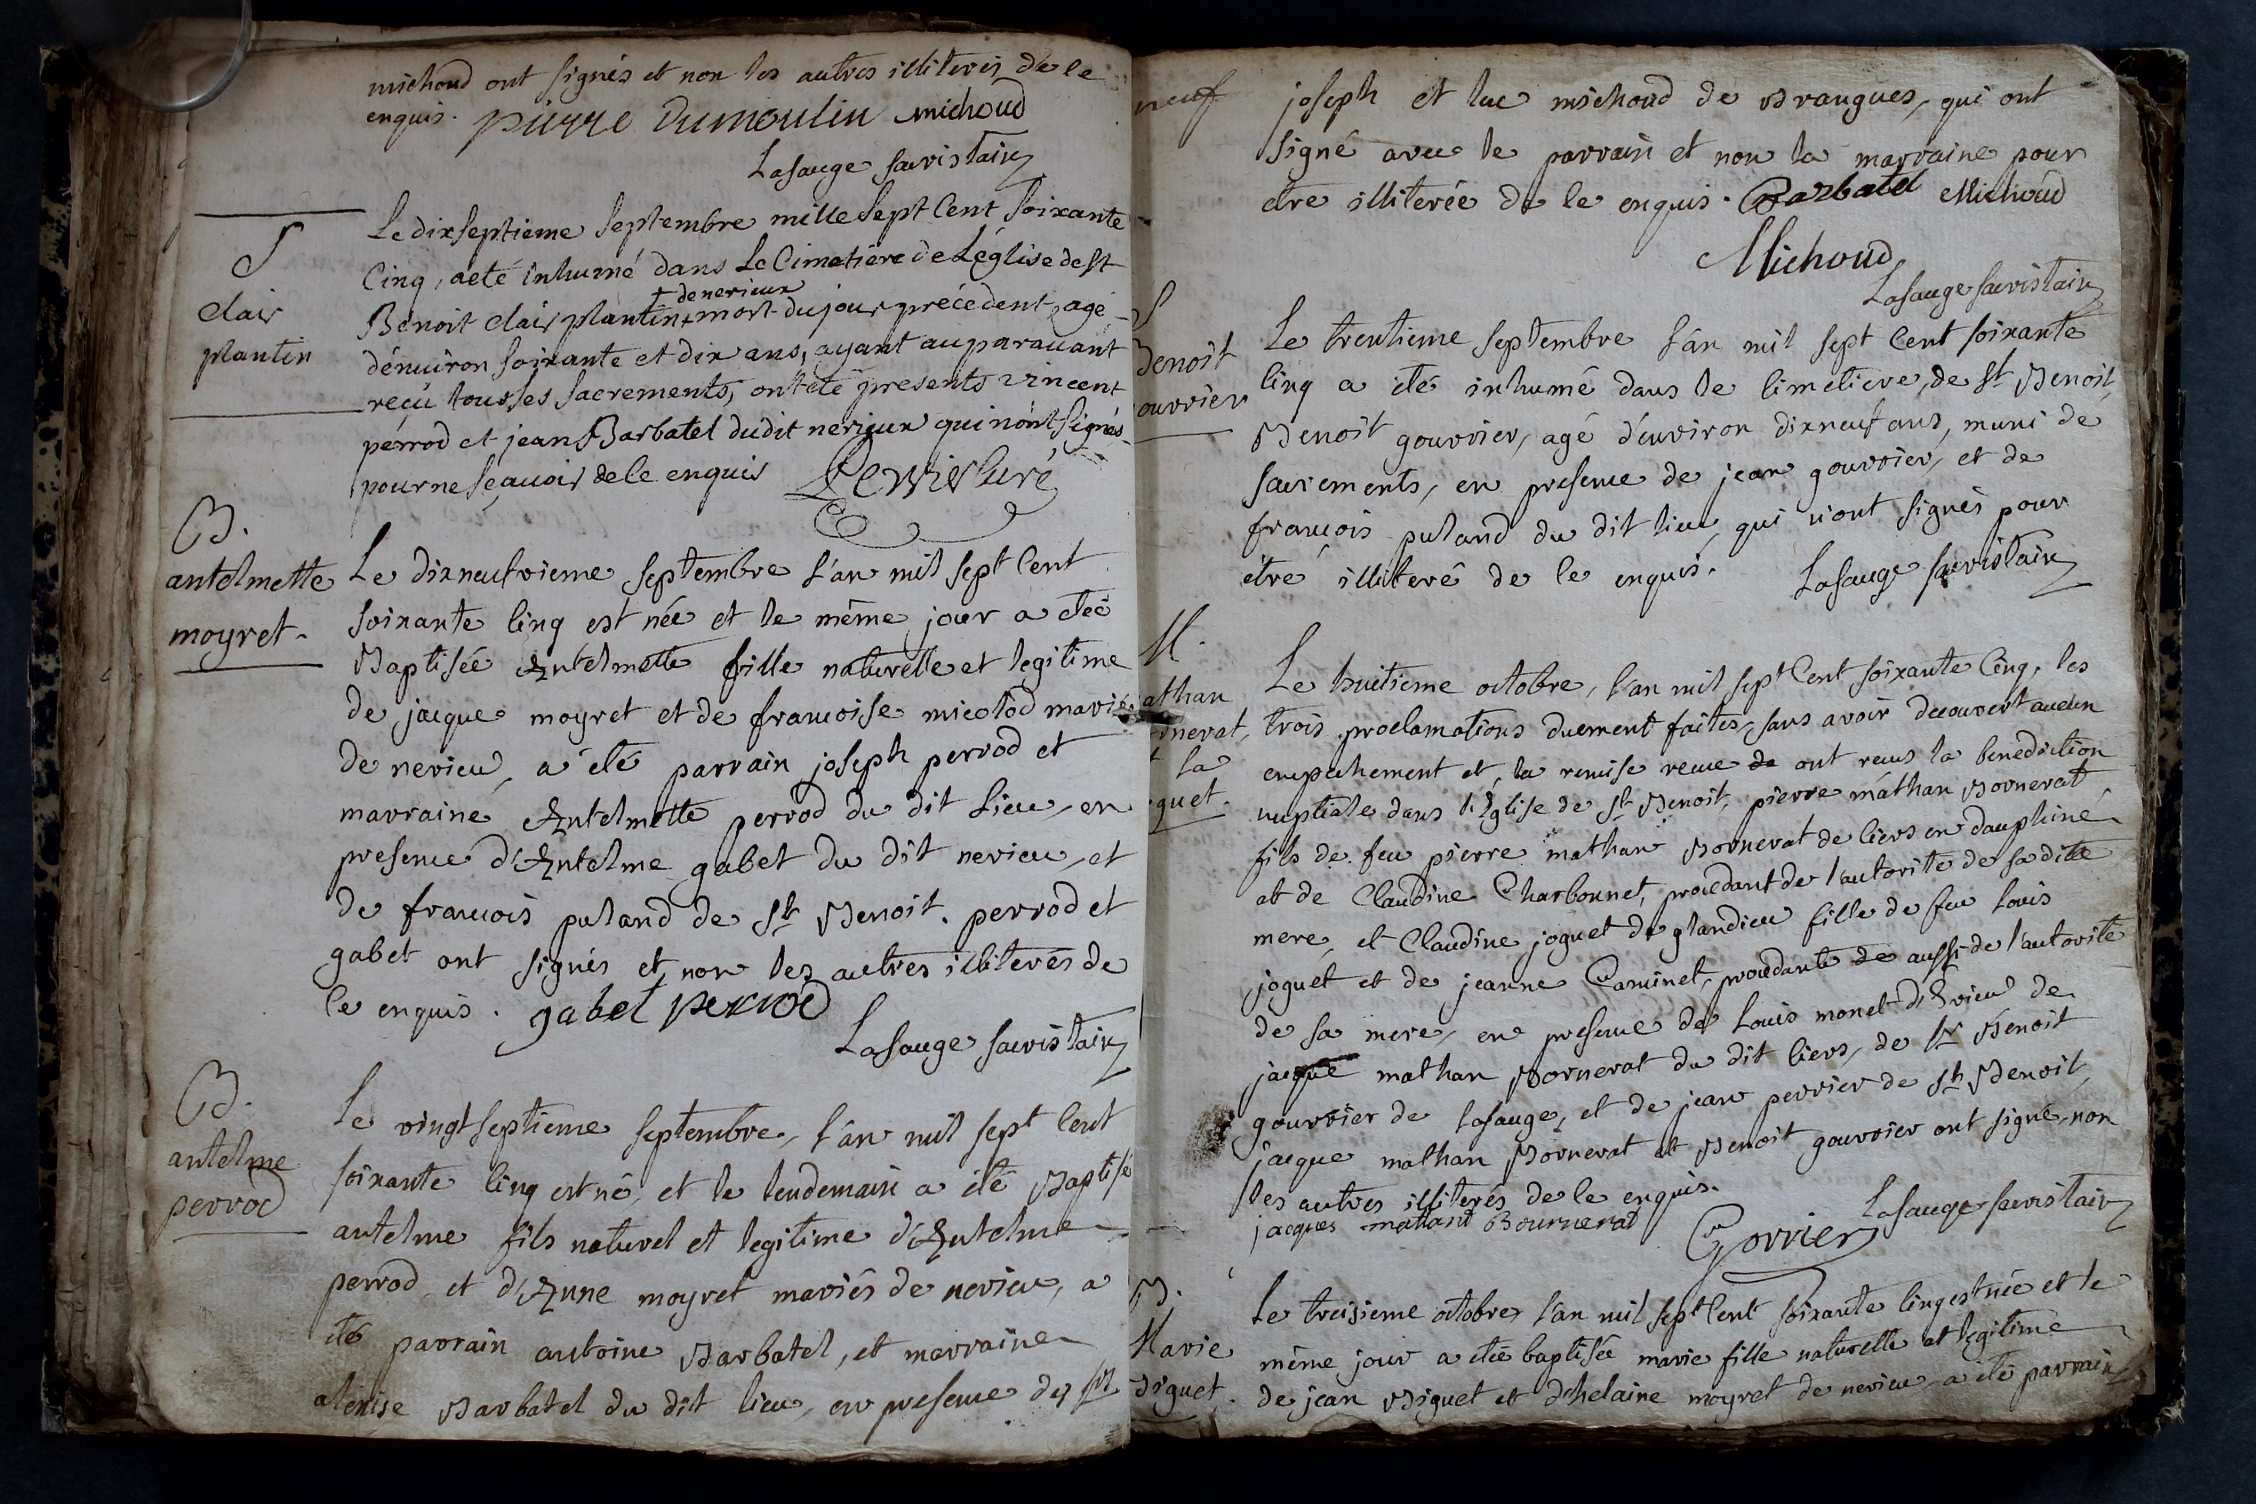 michoud ont signés et non les autres illiterés de le
enquis. pierre Dumoulin michoud
Lasauge sacristain
S
clair
plantin
Le dixseptieme septembre mille sept Cent soixante
Cinq, aeté inhumé dans Le Cimetiére de Léglise de st
Benoit clair plantin + mort du jour précédent, agé
+ de nerieux
dénuiron soixante et dix ans, ayant auparauant
reçu tous ses sacrements, ont été presents vincent
pérrod et jean Barbatel dudit nerieux qui n'ont signés
pour ne sçauoir de le enquis Perrier Curé
B.
antelmette
moyret
Le dixneufvieme septembre l'an mil sept Cent
soixante cinq est née et le même jour a étéé
Baptisée Antelmette fille naturelle et legitime
de jacque moyret et de francoise micolod mariés
de nerieu, a été parrain joseph perrod et
marraine Antelmette perrod du dit Lieu, en
presence d'Antelme gabet du dit nerieu, et
de francois puland de St Benoit. perrod et
gabet ont signés et non les autres illiterés de
le enquis. gabet perrod
Lasauge sacristain
B.
antelme
perrod
Le vingtseptieme septembre, l'an mil sept Cent
soixante cinq est né, et le lendemain a été Baptisé
antelme fils naturel et legitime d'Antelme
perrod et d'Anne moyret mariés de nerieu, a
été parrain antoine Barbatel, et marraine
Barbatel du dit lieu, en presence des srs
neuf
joseph et luc michoud de Brangues, qui ont
signé avec le parrain et non la marraine pour
etre illiterée de le enquis. Barbatel Michoud
Michoud
Lasauge sacristain
S
Benoit
gouvrier
Le trentieme septembre l'an mil sept Cent soixante
cinq a été inhumé dans le cimetiere, de St Benoit,
Benoit gouvrier, agé d'environ dixneuf ans, muni de
sacrements, en presence de jean gouvrier, et de
francois puland du dit lieu, qui n'ont signés pour
étré illiteré de le enquis. Lasauge sacristain
M.
athan
rnerat,
t la
guet.
Le huitieme octobre, l'an mil sept Cent soixante Cinq, les
trois proclamations duement faites, sans avoir decouvert aucun
empechement et la remise recue de ont recus la benediction
nuptiale dans l'Eglise de St Benoit, pierre mathan Bornerat
fils de feu pierre mathan Bornerat de ciers en dauphiné
et de Claudine Charbonnet, procedant de l'autorité de sa dite
mere, et Claudine joguet de glandieu fille de feu Louis
joguet et de jeanne Caminet, procedante de aussi de l'autorité
de sa mere, en presence de Louis monet d'Evieu de
jacque mathan Bornerat du dit ciers, de Benoit
gouvrier de Lasauge, et de jean perrier de St Benoit,
jacque mathan Bornerat et Benoit gouvrier ont signé, non
les autres illiterés de le enquis.
jacques mattant Bournerat Gorrier Lasauge sacristain
B.
Marie
Biguet.
Le treisieme octobre l'an mil sept Cent soixante cinq est née et le
même jour a étéé baptisée marie fille naturelle et legitime
de jean Biguet et d'helaine moyret de nerieu, a été parrain